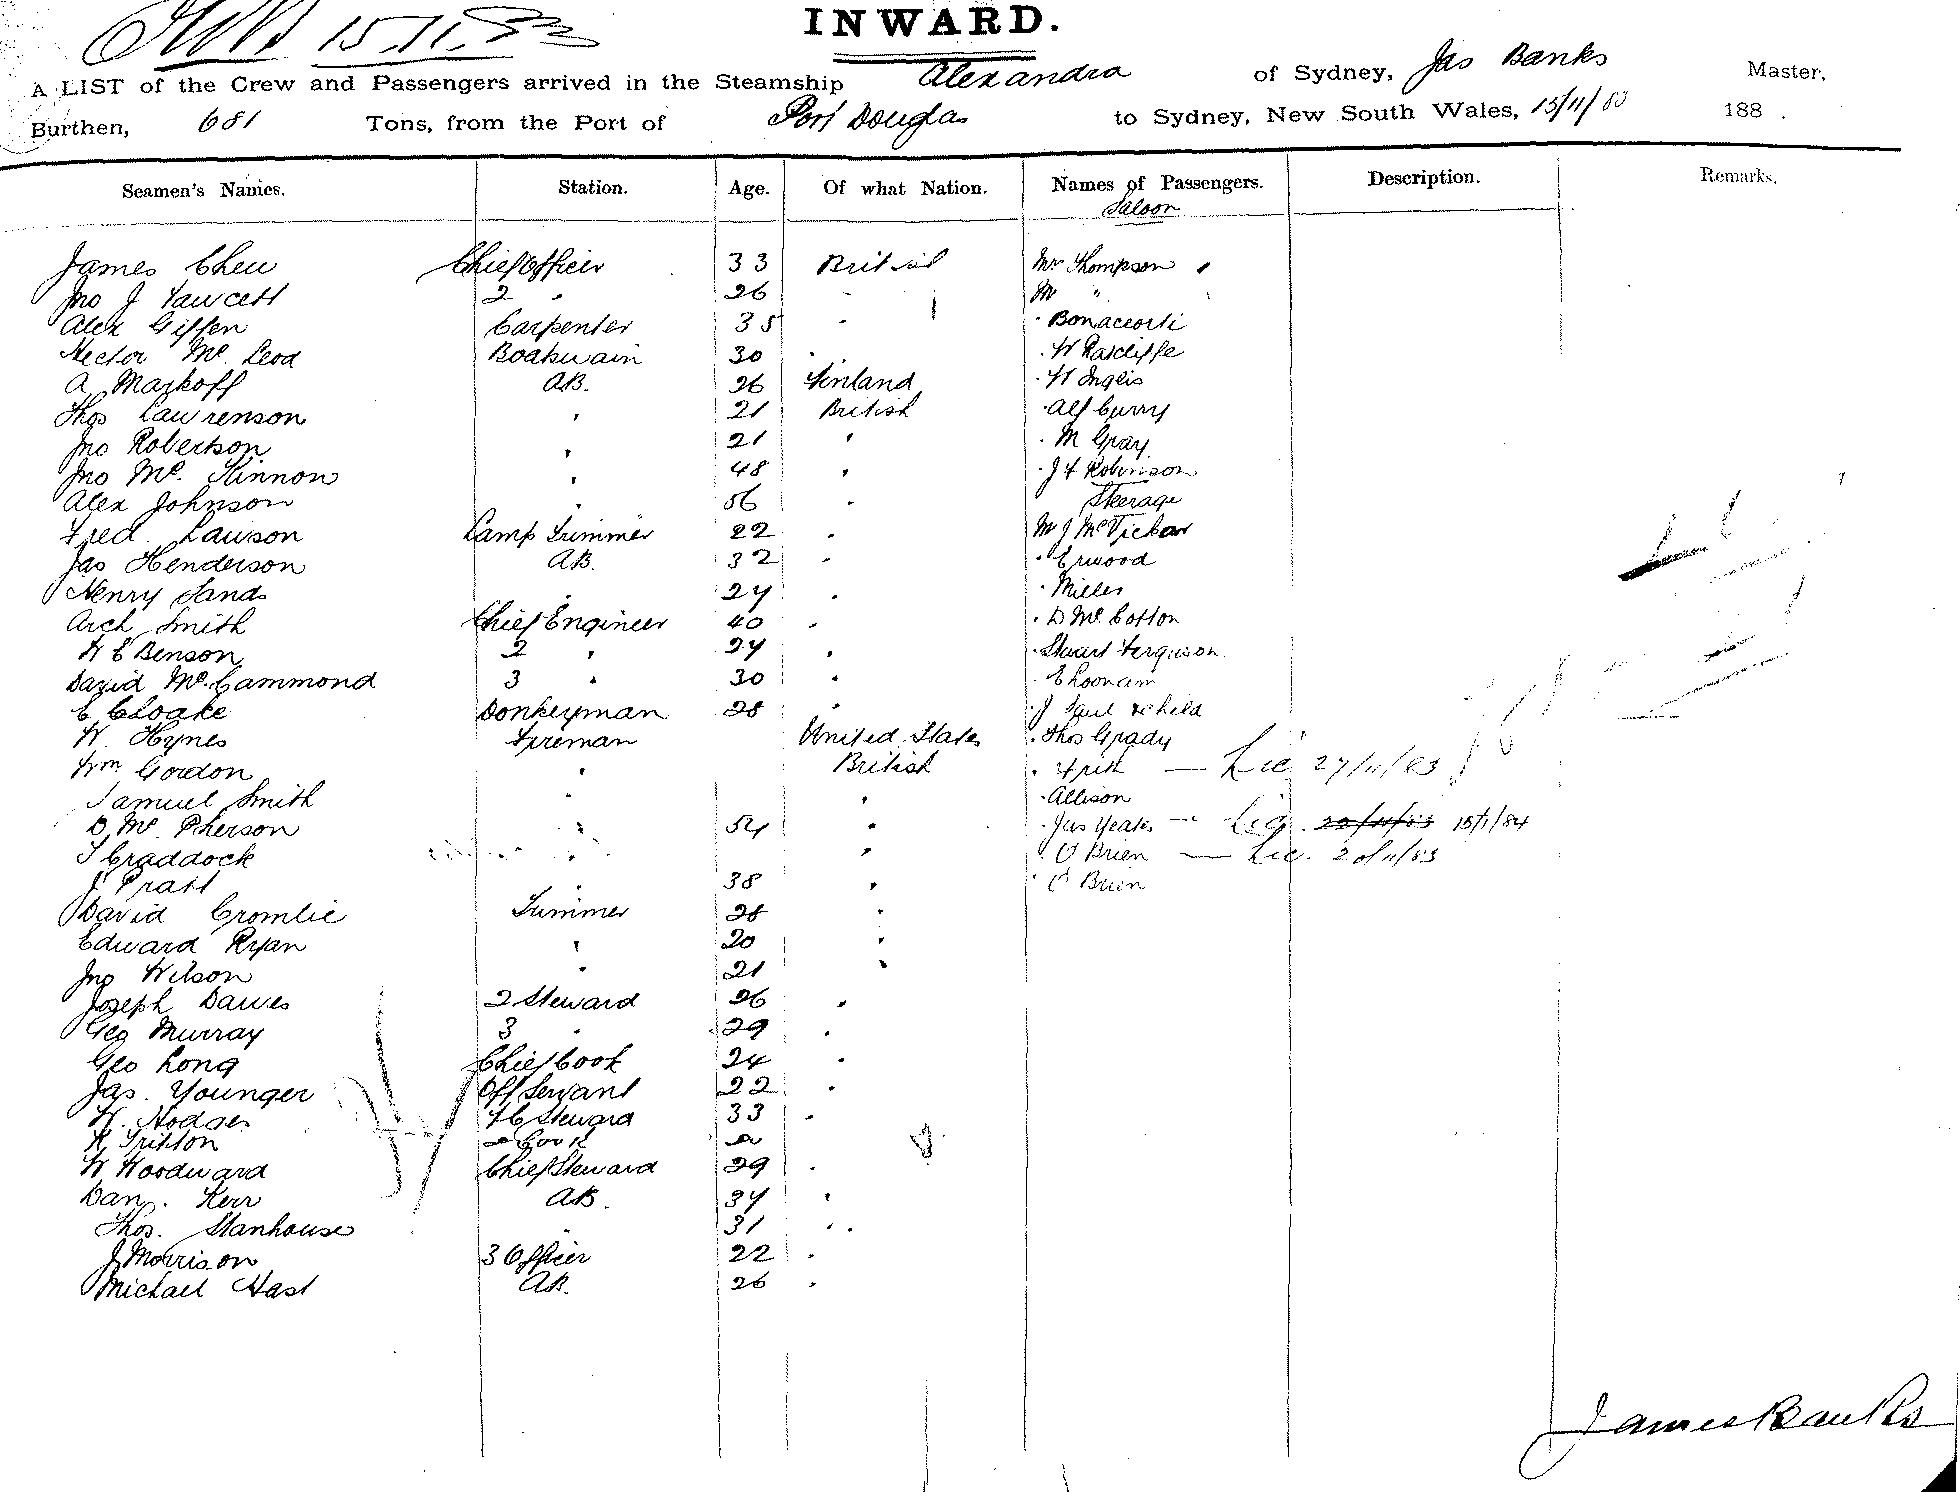 15.11.83
INWARD.
A LIST of the Crew and Passengers arrived in the Steamship Alexandra of Sydney, Jas Banks Master,
Burthen, 681 Tons, from the Port of Port Douglas to Sydney, New South Wales, 15/11/83 188 .
Seamen's Names. Station. Age. Of what Nation. Names of Passengers. Description. Remarks.
Saloon
James Chew Chief Officer 33 British Mr Thompson "
Jno J Fawcett 2 " 26 " M " "
Alex Giffen Carpenter 35 " " Bonaccorti
Hector Mc Leod Boatswain 30 " " W Ratcliffe
A Markoff AB. 26 Finland " W Inglis
Thos Lawrenson " 21 British " Alf Curry
Jno Robertson " 21 " " M Gray
Jno Mc Kinnon " 48 " " J F Robinson
Alex Johnson " 56 " Steerage
Fred. Lawson Lamp Trimmer 22 " Mr J McVickar
Jas Henderson AB. 32 " " Erwood
Henry Sands " 24 " " Milles
Arch Smith Chief Engineer 40 " " D Mc Cotton
W E Benson 2 " 24 " " Stuart Ferguson
David McCammond 3 " 30 " " E Loonam
E Cloake Donkeyman 28 " " J Saul & child
W. Hynes Fireman United States " Thos Grady
Wm Gordon " British " Frith — Lic 27/11/83
Samuel Smith " " " Allison
D, Mc Pherson " 54 " " Jas Yeates — Lic. 20/11/83 15/1/84
T Craddock " " " O Brien — Lic. 20/11/83
J Pratt " 38 " " O Brien
David Cromlie Trimmer 28 "
Edward Ryan " 20 "
Jno Wilson " 21 "
Joseph Dawes 2 Steward 26 "
Geo Murray 3 " 29 "
Geo Long Chief Cook 24 "
Jas. Younger Off Servant 22 "
W. Hodges FC Steward 33 "
R Tritton 2 Cook
W Woodward Chief Steward 29 "
Dan. Kerr AB. 34 "
Thos. Stanhouse " 31 "
J Morrison 3 Officer 22 "
Michael Hast AB. 26 "
James Banks